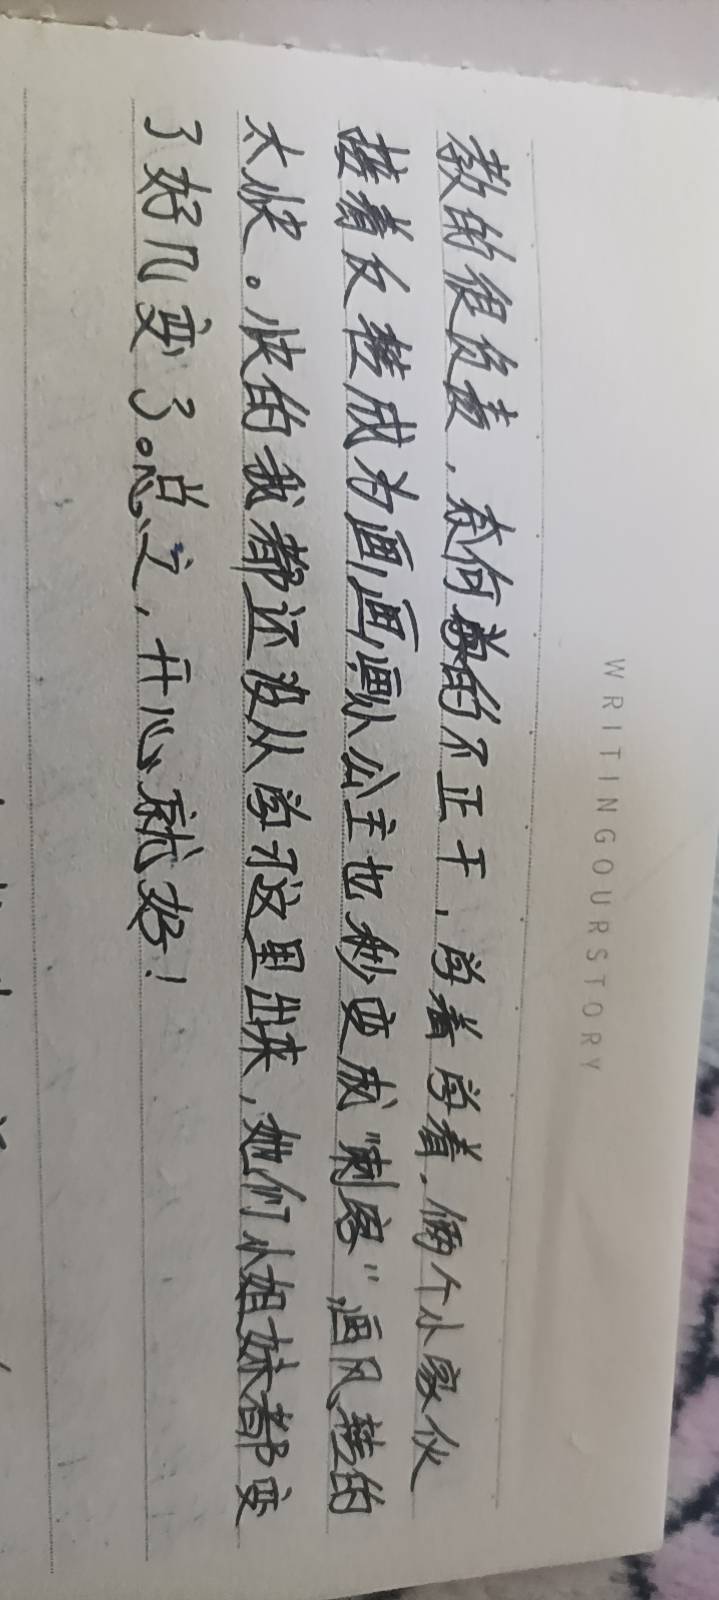 WRITINGOURSTORY
教的很负责，奈何学的不正干，学着学着，俩个小家伙
接着反转成为画画，画小公主也秒变成“刺客”，画风转的
太快。快的我都还没从学习这里出来，她们小姐妹都变
了好几变了。总之，开心就好！